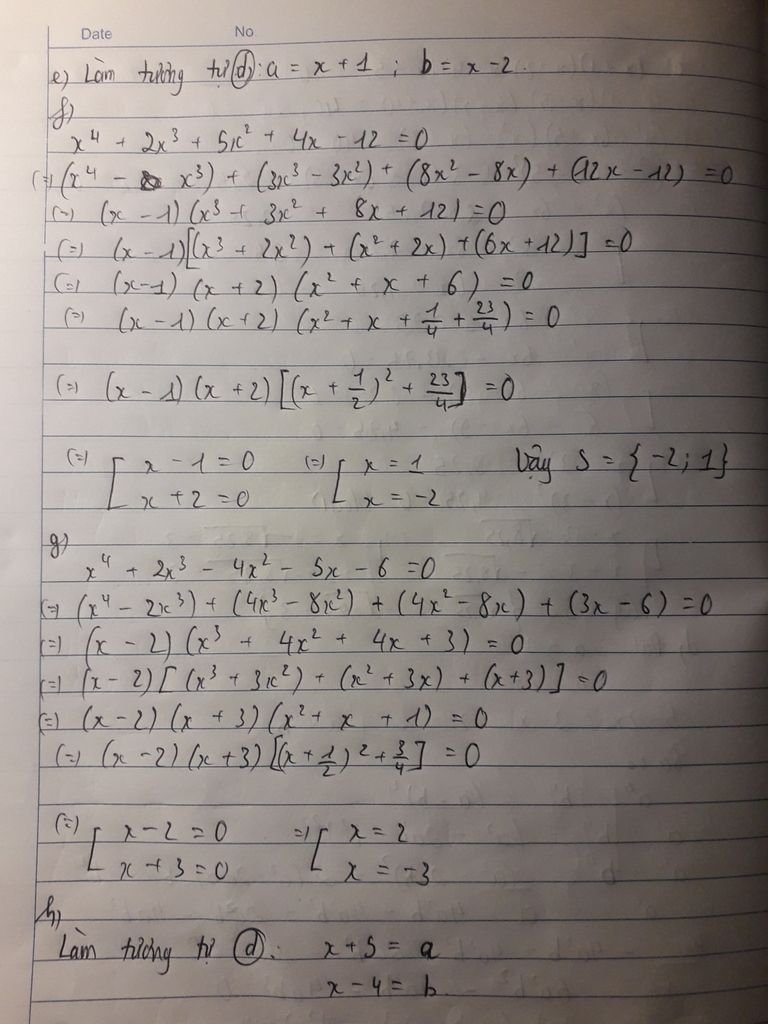 Date No
e) Làm tương tự (d): a = x + 1 ; b = x - 2.
f)
x⁴ + 2x³ + 5x² + 4x - 12 = 0
(=) (x⁴ - x³) + (3x³ - 3x²) + (8x² - 8x) + (12x - 12) = 0
(=) (x - 1) (x³ + 3x² + 8x + 12) = 0
(=) (x - 1)[(x³ + 2x²) + (x² + 2x) + (6x + 12)] = 0
(=) (x - 1) (x + 2) (x² + x + 6) = 0
(=) (x - 1) (x + 2) (x² + x + 1/4 + 23/4) = 0
(=) (x - 1) (x + 2) [(x + 1/2)² + 23/4] = 0
(=) [ x - 1 = 0 (=) [ x = 1 Vậy S = {-2; 1}
x + 2 = 0 x = -2
g)
x⁴ + 2x³ - 4x² - 5x - 6 = 0
(=) (x⁴ - 2x³) + (4x³ - 8x²) + (4x² - 8x) + (3x - 6) = 0
(=) (x - 2) (x³ + 4x² + 4x + 3) = 0
(=) (x - 2) [(x³ + 3x²) + (x² + 3x) + (x + 3)] = 0
(=) (x - 2) (x + 3) (x² + x + 1) = 0
(=) (x - 2) (x + 3) [(x + 1/2)² + 3/4] = 0
(=) [ x - 2 = 0 =) [ x = 2
x + 3 = 0 x = -3
h)
Làm tương tự (d): x + 5 = a
x - 4 = b